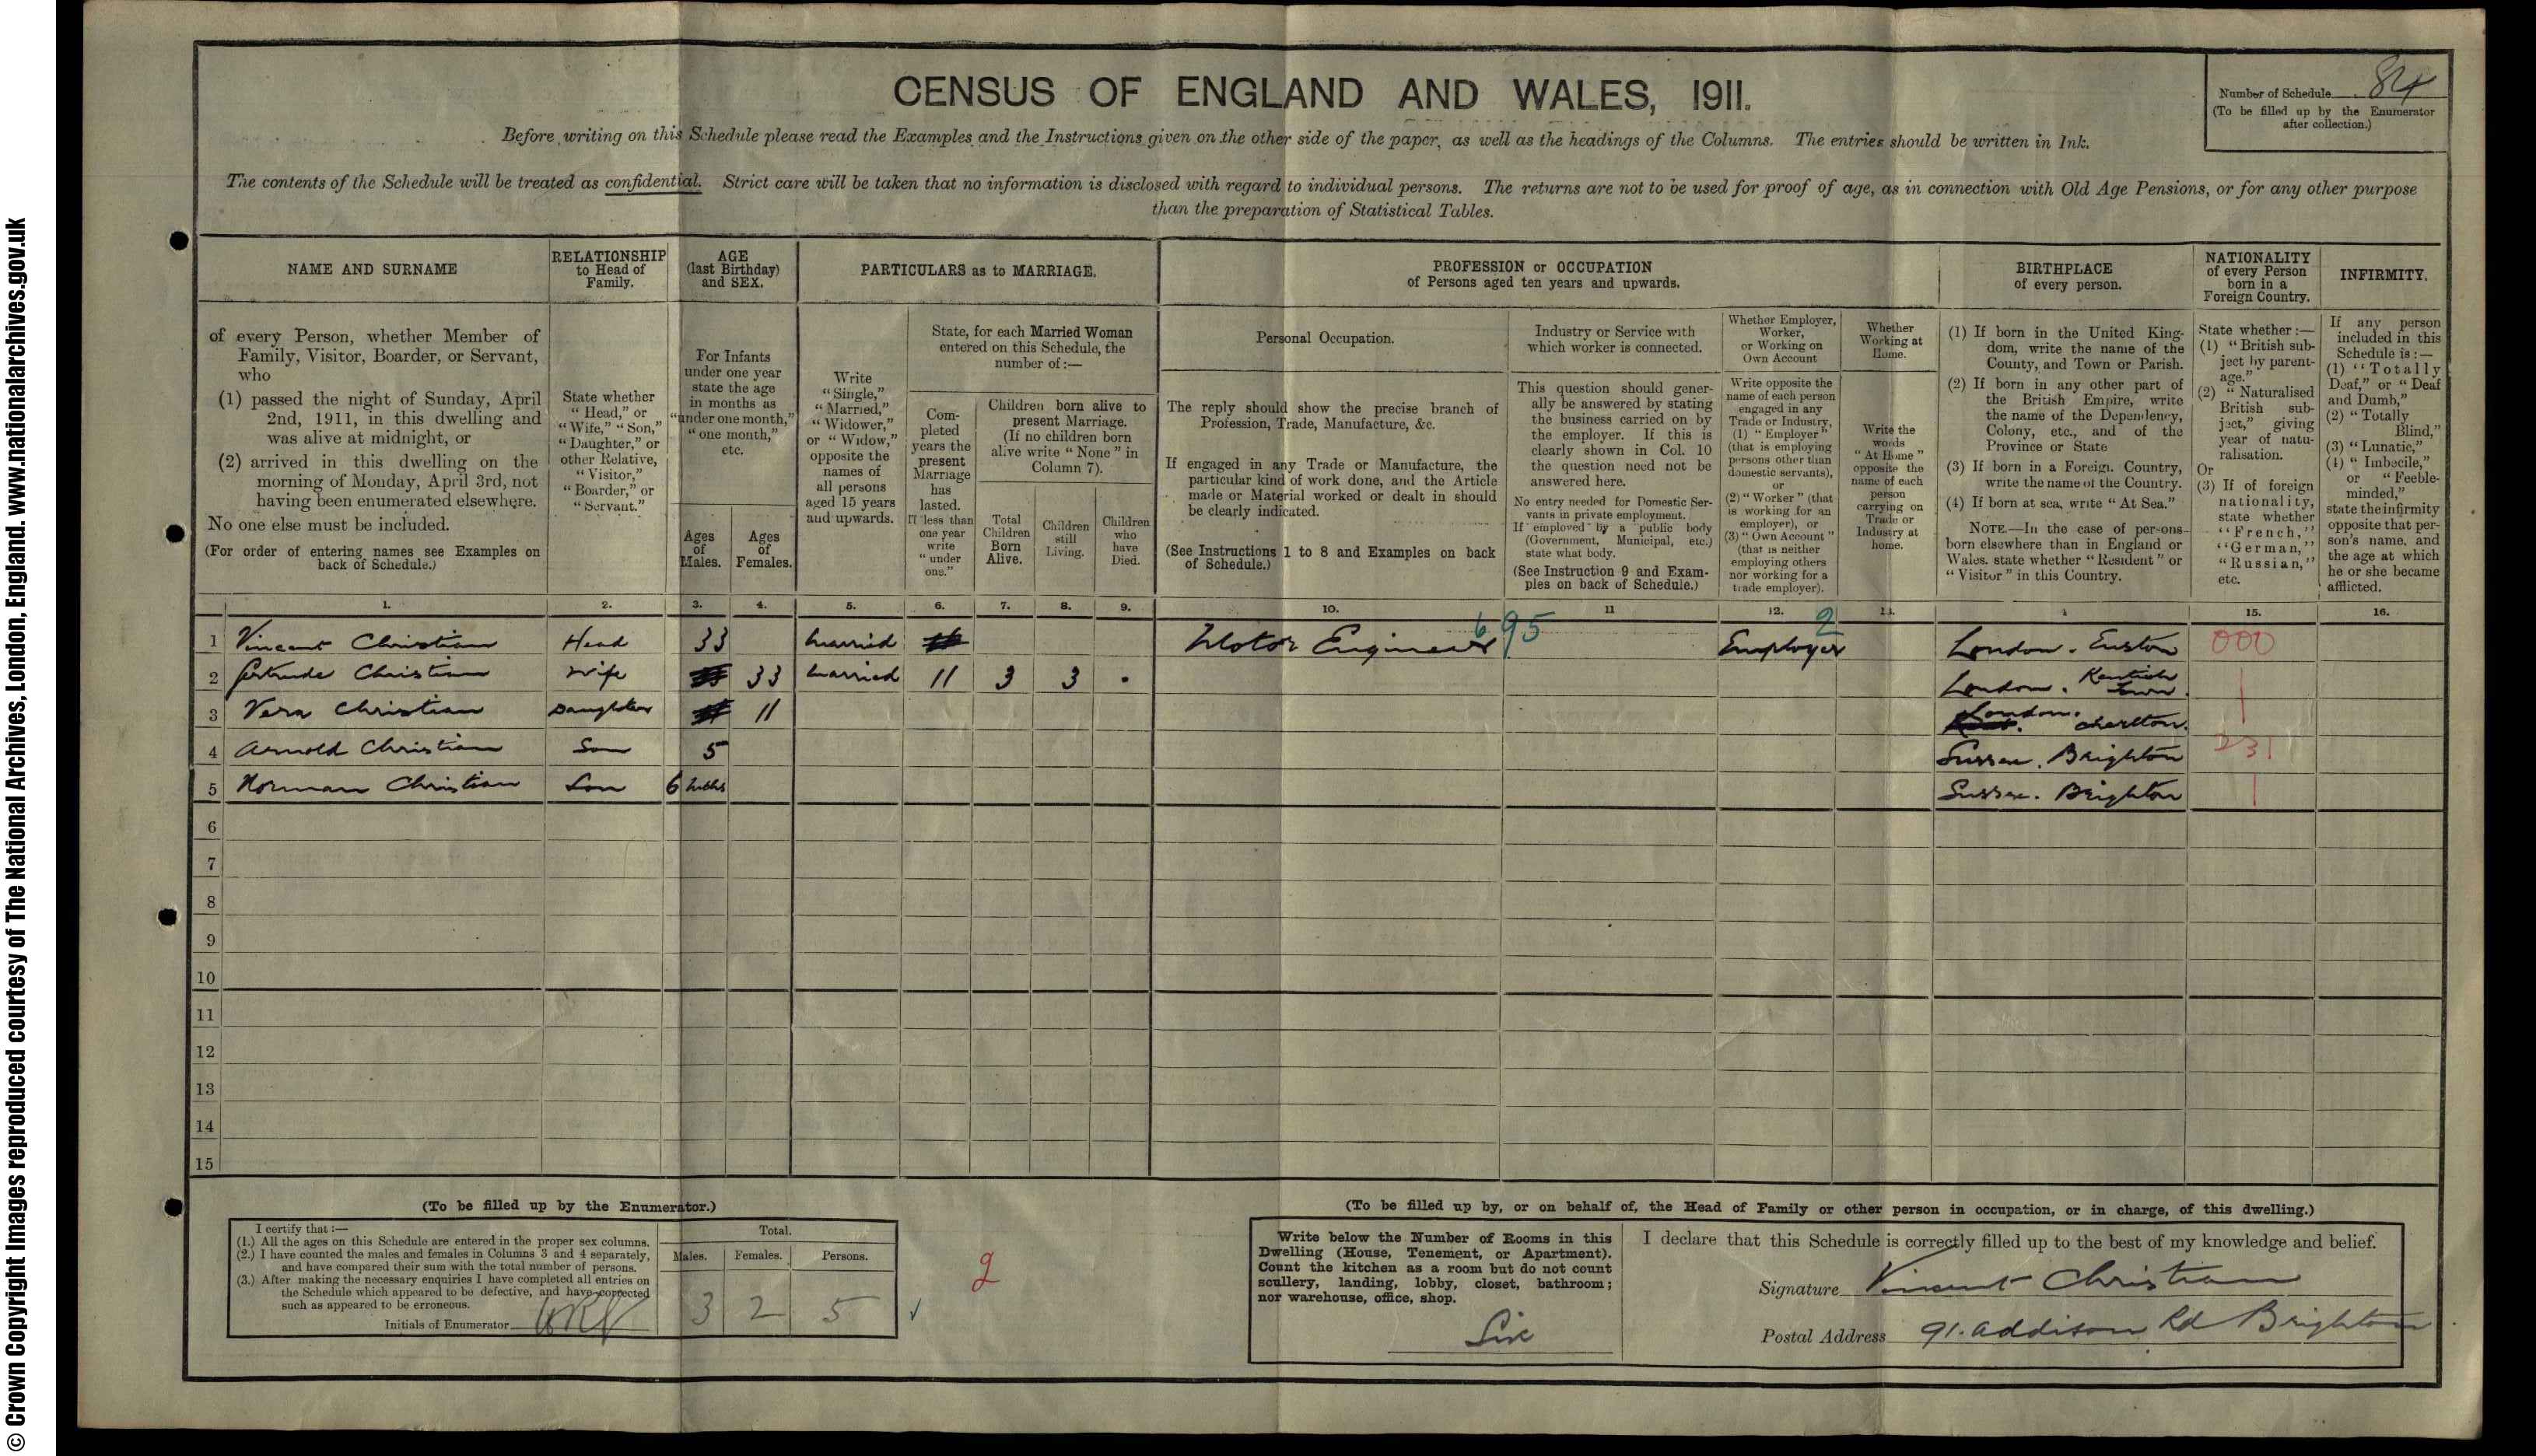 © Crown Copyright Images reproduced courtesy of The National Archives, London, England. www.nationalarchives.gov.uk
CENSUS OF ENGLAND AND WALES, 1911.
Number of Schedule 84
(To be filled up by the Enumerator
after collection.)
Before writing on this Schedule please read the Examples and the Instructions given on the other side of the paper, as well as the headings of the Columns. The entries should be written in Ink.
The contents of the Schedule will be treated as confidential. Strict care will be taken that no information is disclosed with regard to individual persons. The returns are not to be used for proof of age, as in connection with Old Age Pensions, or for any other purpose
than the preparation of Statistical Tables.
NAME AND SURNAME
of every Person, whether Member of
Family, Visitor, Boarder, or Servant,
who
(1) passed the night of Sunday, April
2nd, 1911, in this dwelling and
was alive at midnight, or
(2) arrived in this dwelling on the
morning of Monday, April 3rd, not
having been enumerated elsewhere.
No one else must be included.
(For order of entering names see Examples on
back of Schedule.)
RELATIONSHIP
to Head of
Family.
State whether
"Head," or
"Wife," "Son,"
"Daughter," or
other Relative,
"Visitor,"
"Boarder," or
"Servant."
AGE
(last Birthday)
and SEX.
For Infants
under one year
state the age
in months as
"under one month,"
"one month,"
etc.
Ages
of
Males.
Ages
of
Females.
PARTICULARS as to MARRIAGE.
Write
"Single,"
"Married,"
"Widower,"
or "Widow,"
opposite the
names of
all persons
aged 15 years
and upwards.
State, for each Married Woman
entered on this Schedule, the
number of:—
Com-
pleted
years the
present
Marriage
has
lasted.
If less than
one year
write
"under
one."
Children born alive to
present Marriage.
(If no children born
alive write "None" in
Column 7).
Total
Children
Born
Alive.
Children
still
Living.
Children
who
have
Died.
PROFESSION or OCCUPATION
of Persons aged ten years and upwards.
Personal Occupation.
The reply should show the precise branch of
Profession, Trade, Manufacture, &c.
If engaged in any Trade or Manufacture, the
particular kind of work done, and the Article
made or Material worked or dealt in should
be clearly indicated.
(See Instructions 1 to 8 and Examples on back
of Schedule.)
Industry or Service with
which worker is connected.
This question should gener-
ally be answered by stating
the business carried on by
the employer. If this is
clearly shown in Col. 10
the question need not be
answered here.
No entry needed for Domestic Ser-
vants in private employment.
If employed by a public body
(Government, Municipal, etc.)
state what body.
(See Instruction 9 and Exam-
ples on back of Schedule.)
Whether Employer,
Worker,
or Working on
Own Account
Write opposite the
name of each person
engaged in any
Trade or Industry,
(1) "Employer"
(that is employing
persons other than
domestic servants),
or
(2) "Worker" (that
is working for an
employer), or
(3) "Own Account"
(that is neither
employing others
nor working for a
trade employer).
Whether
Working at
Home.
Write the
words
"At Home"
opposite the
name of each
person
carrying on
Trade or
Industry at
home.
BIRTHPLACE
of every person.
(1) If born in the United King-
dom, write the name of the
County, and Town or Parish.
(2) If born in any other part of
the British Empire, write
the name of the Dependency,
Colony, etc., and of the
Province or State
(3) If born in a Foreign Country,
write the name of the Country.
(4) If born at sea, write "At Sea."
NOTE.—In the case of persons
born elsewhere than in England or
Wales, state whether "Resident" or
"Visitor" in this Country.
NATIONALITY
of every Person
born in a
Foreign Country.
State whether:—
(1) "British sub-
ject by parent-
age."
(2) "Naturalised
British sub-
ject," giving
year of natu-
ralisation.
Or
(3) If of foreign
nationality,
state whether
"French,"
"German,"
"Russian,"
etc.
INFIRMITY.
If any person
included in this
Schedule is:—
(1) "Totally
Deaf," or "Deaf
and Dumb,"
(2) "Totally
Blind,"
(3) "Lunatic,"
(4) "Imbecile,"
or "Feeble-
minded,"
state the infirmity
opposite that per-
son's name, and
the age at which
he or she became
afflicted.
1. 2. 3. 4. 5. 6. 7. 8. 9. 10. 11 12. 13. 15. 16.
1 Vincent Christian Head 33 Married Motor Engineer 695 Employer 2 London. Euston 000
2 Gertrude Christian Wife 33 Married 11 3 3 London. Kentish Town
3 Vera Christian Daughter 11 London. Charlton.
4 Arnold Christian Son 5 Sussex. Brighton 231
5 Norman Christian Son 6 mths Sussex. Brighton
6
7
8
9
10
11
12
13
14
15
(To be filled up by the Enumerator.)
I certify that:—
(1.) All the ages on this Schedule are entered in the proper sex columns.
(2.) I have counted the males and females in Columns 3 and 4 separately,
and have compared their sum with the total number of persons.
(3.) After making the necessary enquiries I have completed all entries on
the Schedule which appeared to be defective, and have corrected
such as appeared to be erroneous.
Initials of Enumerator
Total.
Males. Females. Persons.
3 2 5
(To be filled up by, or on behalf of, the Head of Family or other person in occupation, or in charge, of this dwelling.)
Write below the Number of Rooms in this
Dwelling (House, Tenement, or Apartment).
Count the kitchen as a room but do not count
scullery, landing, lobby, closet, bathroom;
nor warehouse, office, shop.
Six
I declare that this Schedule is correctly filled up to the best of my knowledge and belief.
Signature Vincent Christian
Postal Address 91. Addison Rd Brighton